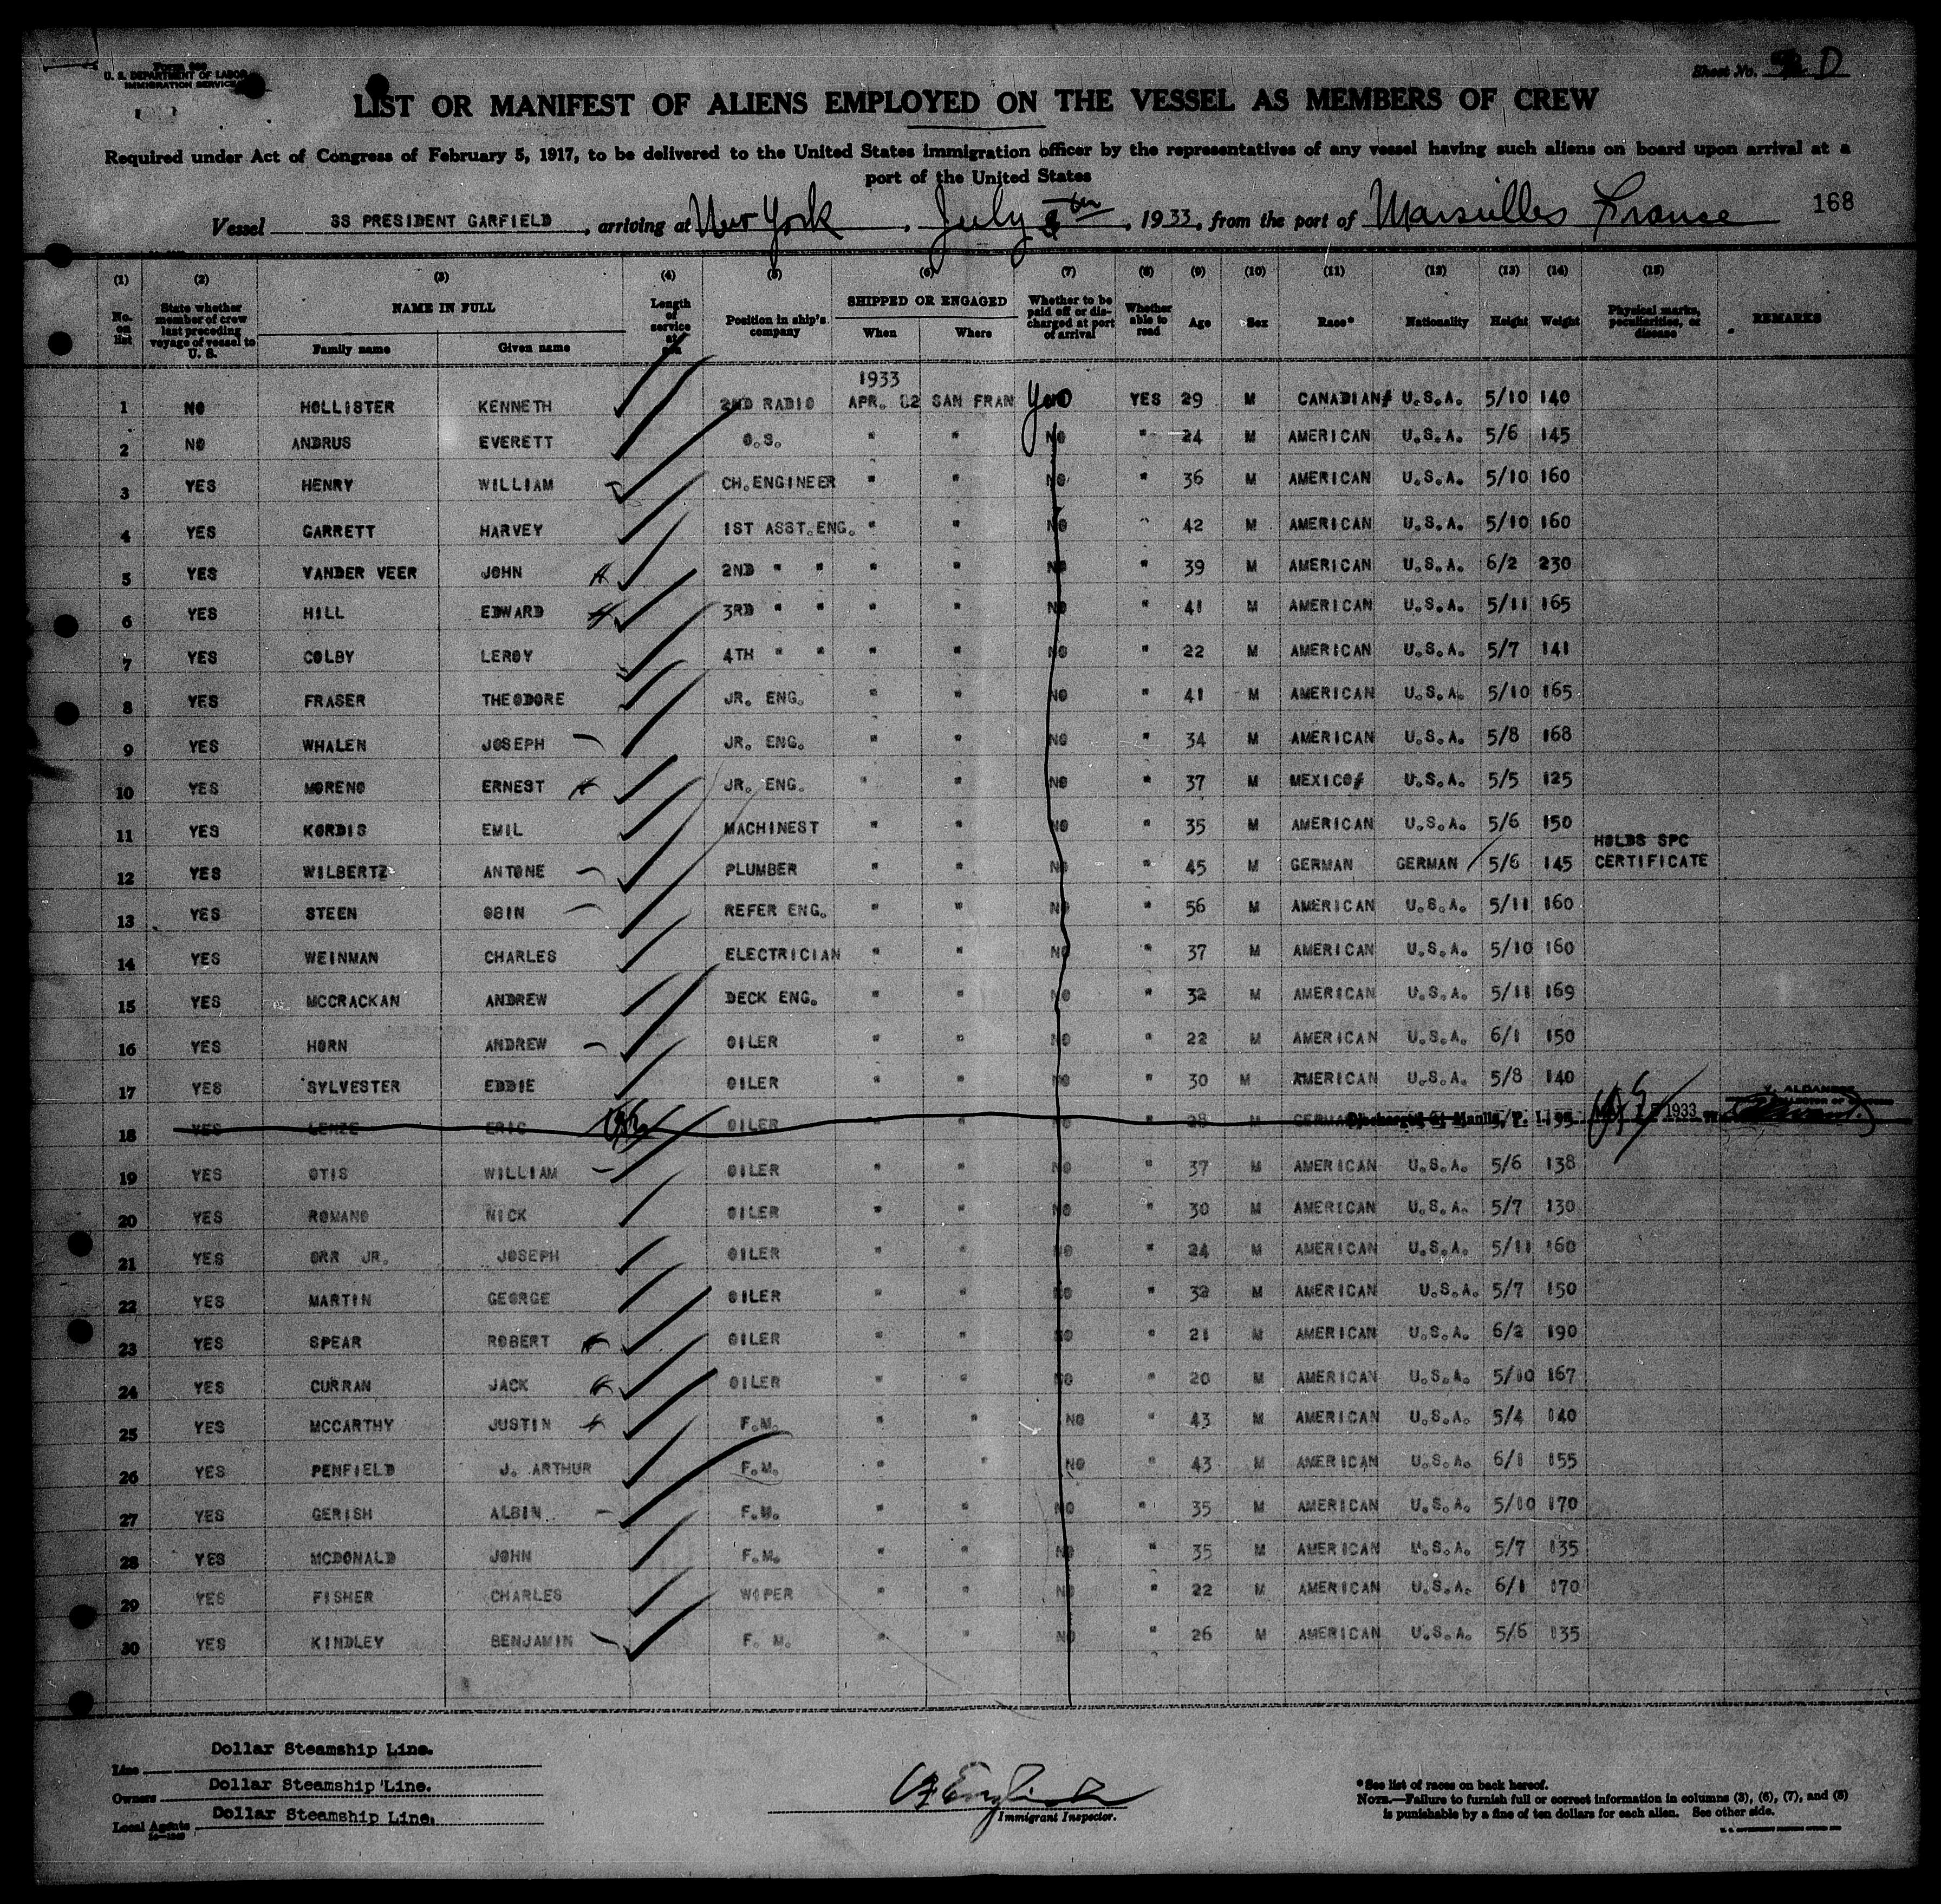 Form 680
U. S. DEPARTMENT OF LABOR
IMMIGRATION SERVICE
Sheet No. D
LIST OR MANIFEST OF ALIENS EMPLOYED ON THE VESSEL AS MEMBERS OF CREW
Required under Act of Congress of February 5, 1917, to be delivered to the United States immigration officer by the representatives of any vessel having such aliens on board upon arrival at a
port of the United States
Vessel SS PRESIDENT GARFIELD, arriving at New York, July 5th, 1933, from the port of Marseilles France 168
(1) (2) (3) (4) (5) (6) (7) (8) (9) (10) (11) (12) (13) (14) (15)
No. on list State whether member of crew last preceding voyage of vessel to U. S. NAME IN FULL Family name Given name Length of service at sea Position in ship's company SHIPPED OR ENGAGED When Where Whether to be paid off or discharged at port of arrival Whether able to read Age Sex Race* Nationality Height Weight Physical marks, peculiarities, or disease REMARKS
1933
1 NO HOLLISTER KENNETH 2ND RADIO APR. 02 SAN FRAN Yes YES 29 M CANADIAN# U.S.A. 5/10 140
2 NO ANDRUS EVERETT O.S. " " NO " 24 M AMERICAN U.S.A. 5/6 145
3 YES HENRY WILLIAM CH.ENGINEER " " NO " 36 M AMERICAN U.S.A. 5/10 160
4 YES GARRETT HARVEY 1ST ASST.ENG. " " NO " 42 M AMERICAN U.S.A. 5/10 160
5 YES VANDER VEER JOHN 2ND " " " " NO " 39 M AMERICAN U.S.A. 6/2 230
6 YES HILL EDWARD 3RD " " " " NO " 41 M AMERICAN U.S.A. 5/11 165
7 YES COLBY LEROY 4TH " " " " NO " 22 M AMERICAN U.S.A. 5/7 141
8 YES FRASER THEODORE JR. ENG. " " NO " 41 M AMERICAN U.S.A. 5/10 165
9 YES WHALEN JOSEPH JR. ENG. " " NO " 34 M AMERICAN U.S.A. 5/8 168
10 YES MORENO ERNEST JR. ENG. " " NO " 37 M MEXICO# U.S.A. 5/5 125
11 YES KORDIS EMIL MACHINEST " " NO " 35 M AMERICAN U.S.A. 5/6 150
12 YES WILBERTZ ANTONE PLUMBER " " NO " 45 M GERMAN GERMAN 5/6 145 HOLDS SPC CERTIFICATE
13 YES STEEN OBIN REFER ENG. " " NO " 56 M AMERICAN U.S.A. 5/11 160
14 YES WEINMAN CHARLES ELECTRICIAN " " NO " 37 M AMERICAN U.S.A. 5/10 160
15 YES MCCRACKAN ANDREW DECK ENG. " " NO " 32 M AMERICAN U.S.A. 5/11 169
16 YES HORN ANDREW OILER " " NO " 22 M AMERICAN U.S.A. 6/1 150
17 YES SYLVESTER EDDIE OILER " " NO " 30 M AMERICAN U.S.A. 5/8 140
18 YES LENZE ERIC OILER " " NO " 28 M Discharged at Manila, P. I. 1933
19 YES OTIS WILLIAM OILER " " NO " 37 M AMERICAN U.S.A. 5/6 138
20 YES ROMANO NICK OILER " " NO " 30 M AMERICAN U.S.A. 5/7 130
21 YES ORR JR. JOSEPH OILER " " NO " 24 M AMERICAN U.S.A. 5/11 160
22 YES MARTIN GEORGE OILER " " NO " 32 M AMERICAN U.S.A. 5/7 150
23 YES SPEAR ROBERT OILER " " NO " 21 M AMERICAN U.S.A. 6/2 190
24 YES CURRAN JACK OILER " " NO " 20 M AMERICAN U.S.A. 5/10 167
25 YES MCCARTHY JUSTIN F.M. " " NO " 43 M AMERICAN U.S.A. 5/4 140
26 YES PENFIELD J. ARTHUR F.M. " " NO " 43 M AMERICAN U.S.A. 6/1 155
27 YES GERISH ALBIN F.M. " " NO " 35 M AMERICAN U.S.A. 5/10 170
28 YES MCDONALD JOHN F.M. " " NO " 35 M AMERICAN U.S.A. 5/7 135
29 YES FISHER CHARLES WIPER " " NO " 22 M AMERICAN U.S.A. 6/1 170
30 YES KINDLEY BENJAMIN F. M. " " NO " 26 M AMERICAN U.S.A. 5/6 135
Line Dollar Steamship Line.
Owners Dollar Steamship Line.
Local Agents Dollar Steamship Line.
Immigrant Inspector.
*See list of races on back hereof.
NOTE.—Failure to furnish full or correct information in columns (3), (6), (7), and (8)
is punishable by a fine of ten dollars for each alien. See other side.